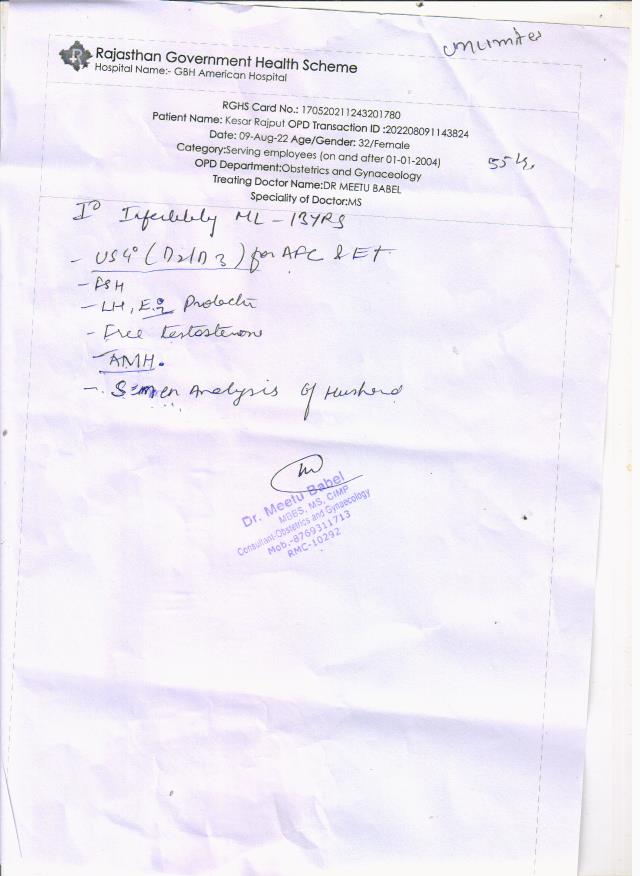 unlimites
Rajasthan Government Health Scheme
Hospital Name:- GBH American Hospital
RGHS Card No.: 170520211243201780
Patient Name: Kesar Rajput OPD Transaction ID :202208091143824
Date: 09-Aug-22 Age/Gender: 32/Female
Category:Serving employees (on and after 01-01-2004)
55 k.
OPD Department:Obstetrics and Gynaceology
Treating Doctor Name:DR MEETU BABEL
Speciality of Doctor:MS
I° Infertility ML - 13YRS
- USG (D2/D3) for AFC & ET
- FSH
- LH, E2, Prolactin
- Free testosterone
- AMH.
- Semen Analysis of Husband
Dr. Meetu Babel
MBBS, MS, CIMP
Consultant-Obstetrics and Gynaecology
Mob.-8769311713
RMC-10292